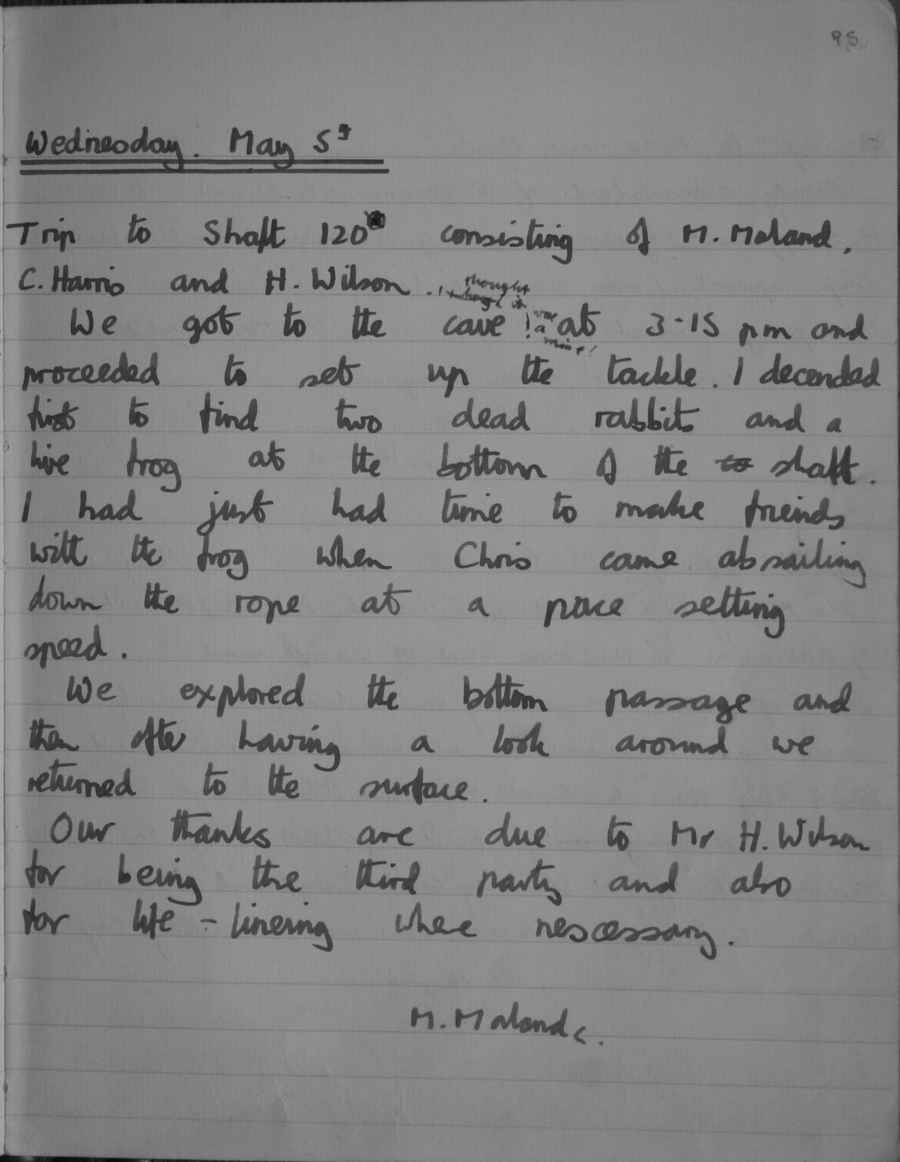 95
Wednesday. May 5th
Trip to Shaft 120 consisting of M. Maland,
C. Harris and H. Wilson.
I thought it was a mine!
We got to the cave at 3-15 pm and
proceeded to set up the tackle. I decended
first to find two dead rabbits and a
live frog at the bottom of the to shaft.
I had just had time to make friends
with the frog when Chris came absailing
down the rope at a pace setting
speed.
We explored the bottom passage and
then after having a look around we
returned to the surface.
Our thanks are due to Mr H. Wilson
for being the third party and also
for life-linering where nescessary.
M. Maland